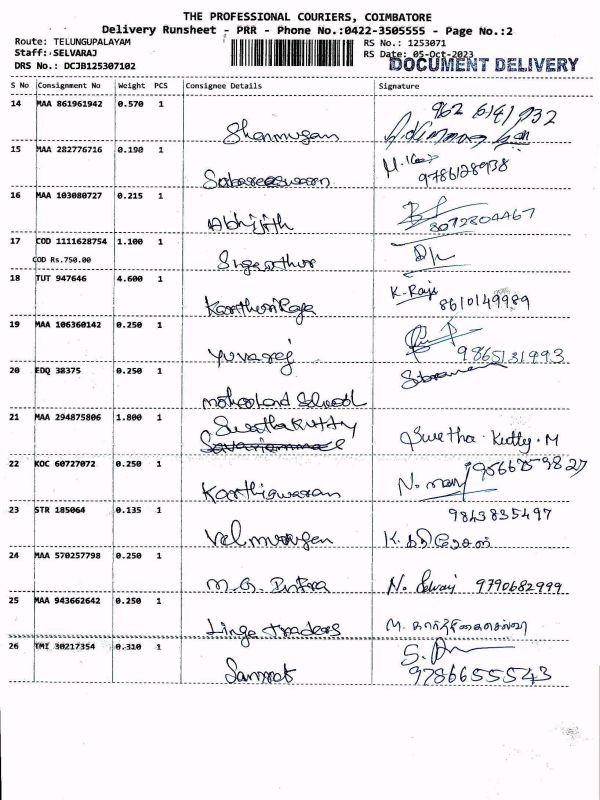 THE PROFESSIONAL COURIERS, COIMBATORE
Delivery Runsheet - PRR - Phone No.:0422-3505555 - Page No.:2
Route: TELUNGUPALAYAM RS No.: 1253071
Staff: SELVARAJ RS Date: 05-Oct-2023
DOCUMENT DELIVERY
DRS No.: DCJB125307102
S No Consignment No Weight PCS Consignee Details Signature
14 MAA 861961942 0.570 1
Shanmugam
15 MAA 282776716 0.190 1
9786128938
16 MAA 103080727 0.215 1
Abhijith 8072804467
17 COD 1111628754 1.100 1
COD Rs.750.00
18 TUT 947646 4.600 1 K-Raja
8610149989
19 MAA 106360142 0.250 1
Yuvaraj 9865131993
20 EDQ 38375 0.250 1
21 MAA 294875806 1.800 1
Swetha Kutty Swetha. Kutty. M
22 KOC 60727072 0.250 1
23 STR 185064 0.135 1 9843835497
Velmurugan
24 MAA 570257798 0.250 1
9790682999
25 MAA 943662642 0.250 1
Linga Traders
26 TMI 30217354 0.310 1
9786655543